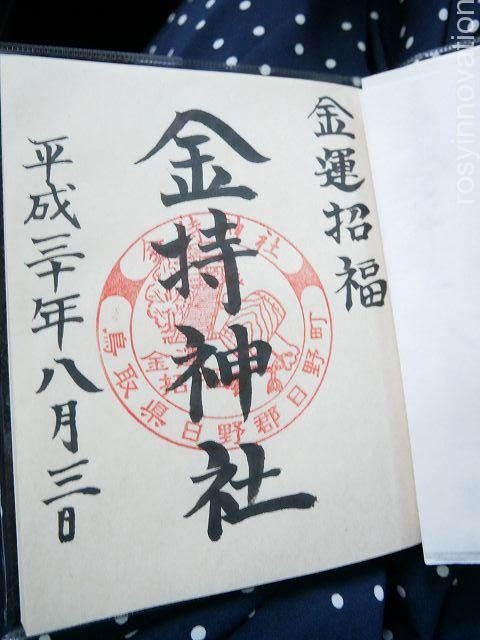 金運招福
金持神社
平成三十年八月三日
金持神社
鳥取県日野郡日野町
rosyinnovation